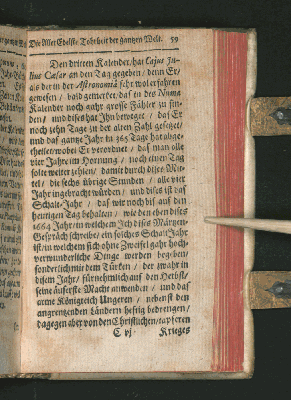 Die Aller Edelste Tohrheit der gantzen Welt. 59
Den dritten Kalender, hat Cajus Ju-
lius Cæsar an den Tag gegeben / denn Er /
als der in der Astronomia sehr wol erfahren
gewesen / bald gemerket, daß in des Numa
Kalender noch gahr grosse Fähler zu fin-
den / und dises hat Ihn beweget / daß Er
noch zehn Tage zu der alten Zahl gesetzet /
und das gantze Jahr in 365 Tage hat abge-
theilet / wobei Er verordnet / daß man alle
vier Jahre im Hornung / noch einen Tag
solte weiter zehlen / damit durch dises Mit-
tel / die sechs übrige Stunden / alle vier
Jahr ingebracht würden / und dises ist das
Schalt-Jahr / das wir noch biß auf den
heutigen Tag behalten / wie den eben dises
1664 Jahr / in welchem Ich dise Märtzen-
Gespräch schreibe / ein solches Schalt Jahr
ist / in welchem sich ohne Zweifel gahr hoch-
verwunderliche Dinge werden begeben /
sonderlich mit dem Türken / der zwahr in
disem Jahr / fürnehmlich auf den Herbst
seine äuserste Macht anwenden / und das
arme Königreich Ungeren / nebenst den
angrentzenden Ländern heftig bedrengen /
dagegen aber von den Christlichen / tapferen
C vj Krieges